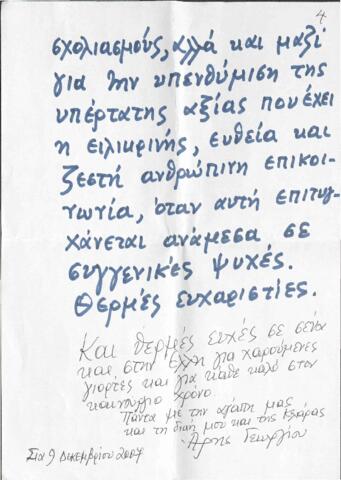 4
σχολιασμούς, αλλά και μαζί
για την υπενθύμιση της
υπέρτατης αξίας που έχει
η ειλικρινής, ευθεία και
ζεστή ανθρώπινη επικοι-
νωνία, όταν αυτή επιτυγ-
χάνεται ανάμεσα σε
συγγενικές ψυχές.
Θερμές ευχαριστίες.
Και θερμές ευχές σε σένα
και στην Έλλη για χαρούμενες
γιορτές και για κάθε καλό στον
καινούργιο χρόνο.
Πάντα με την αγάπη μας
και τη δική μου και της
Άρης Γεωργίου
9 Δεκεμβρίου